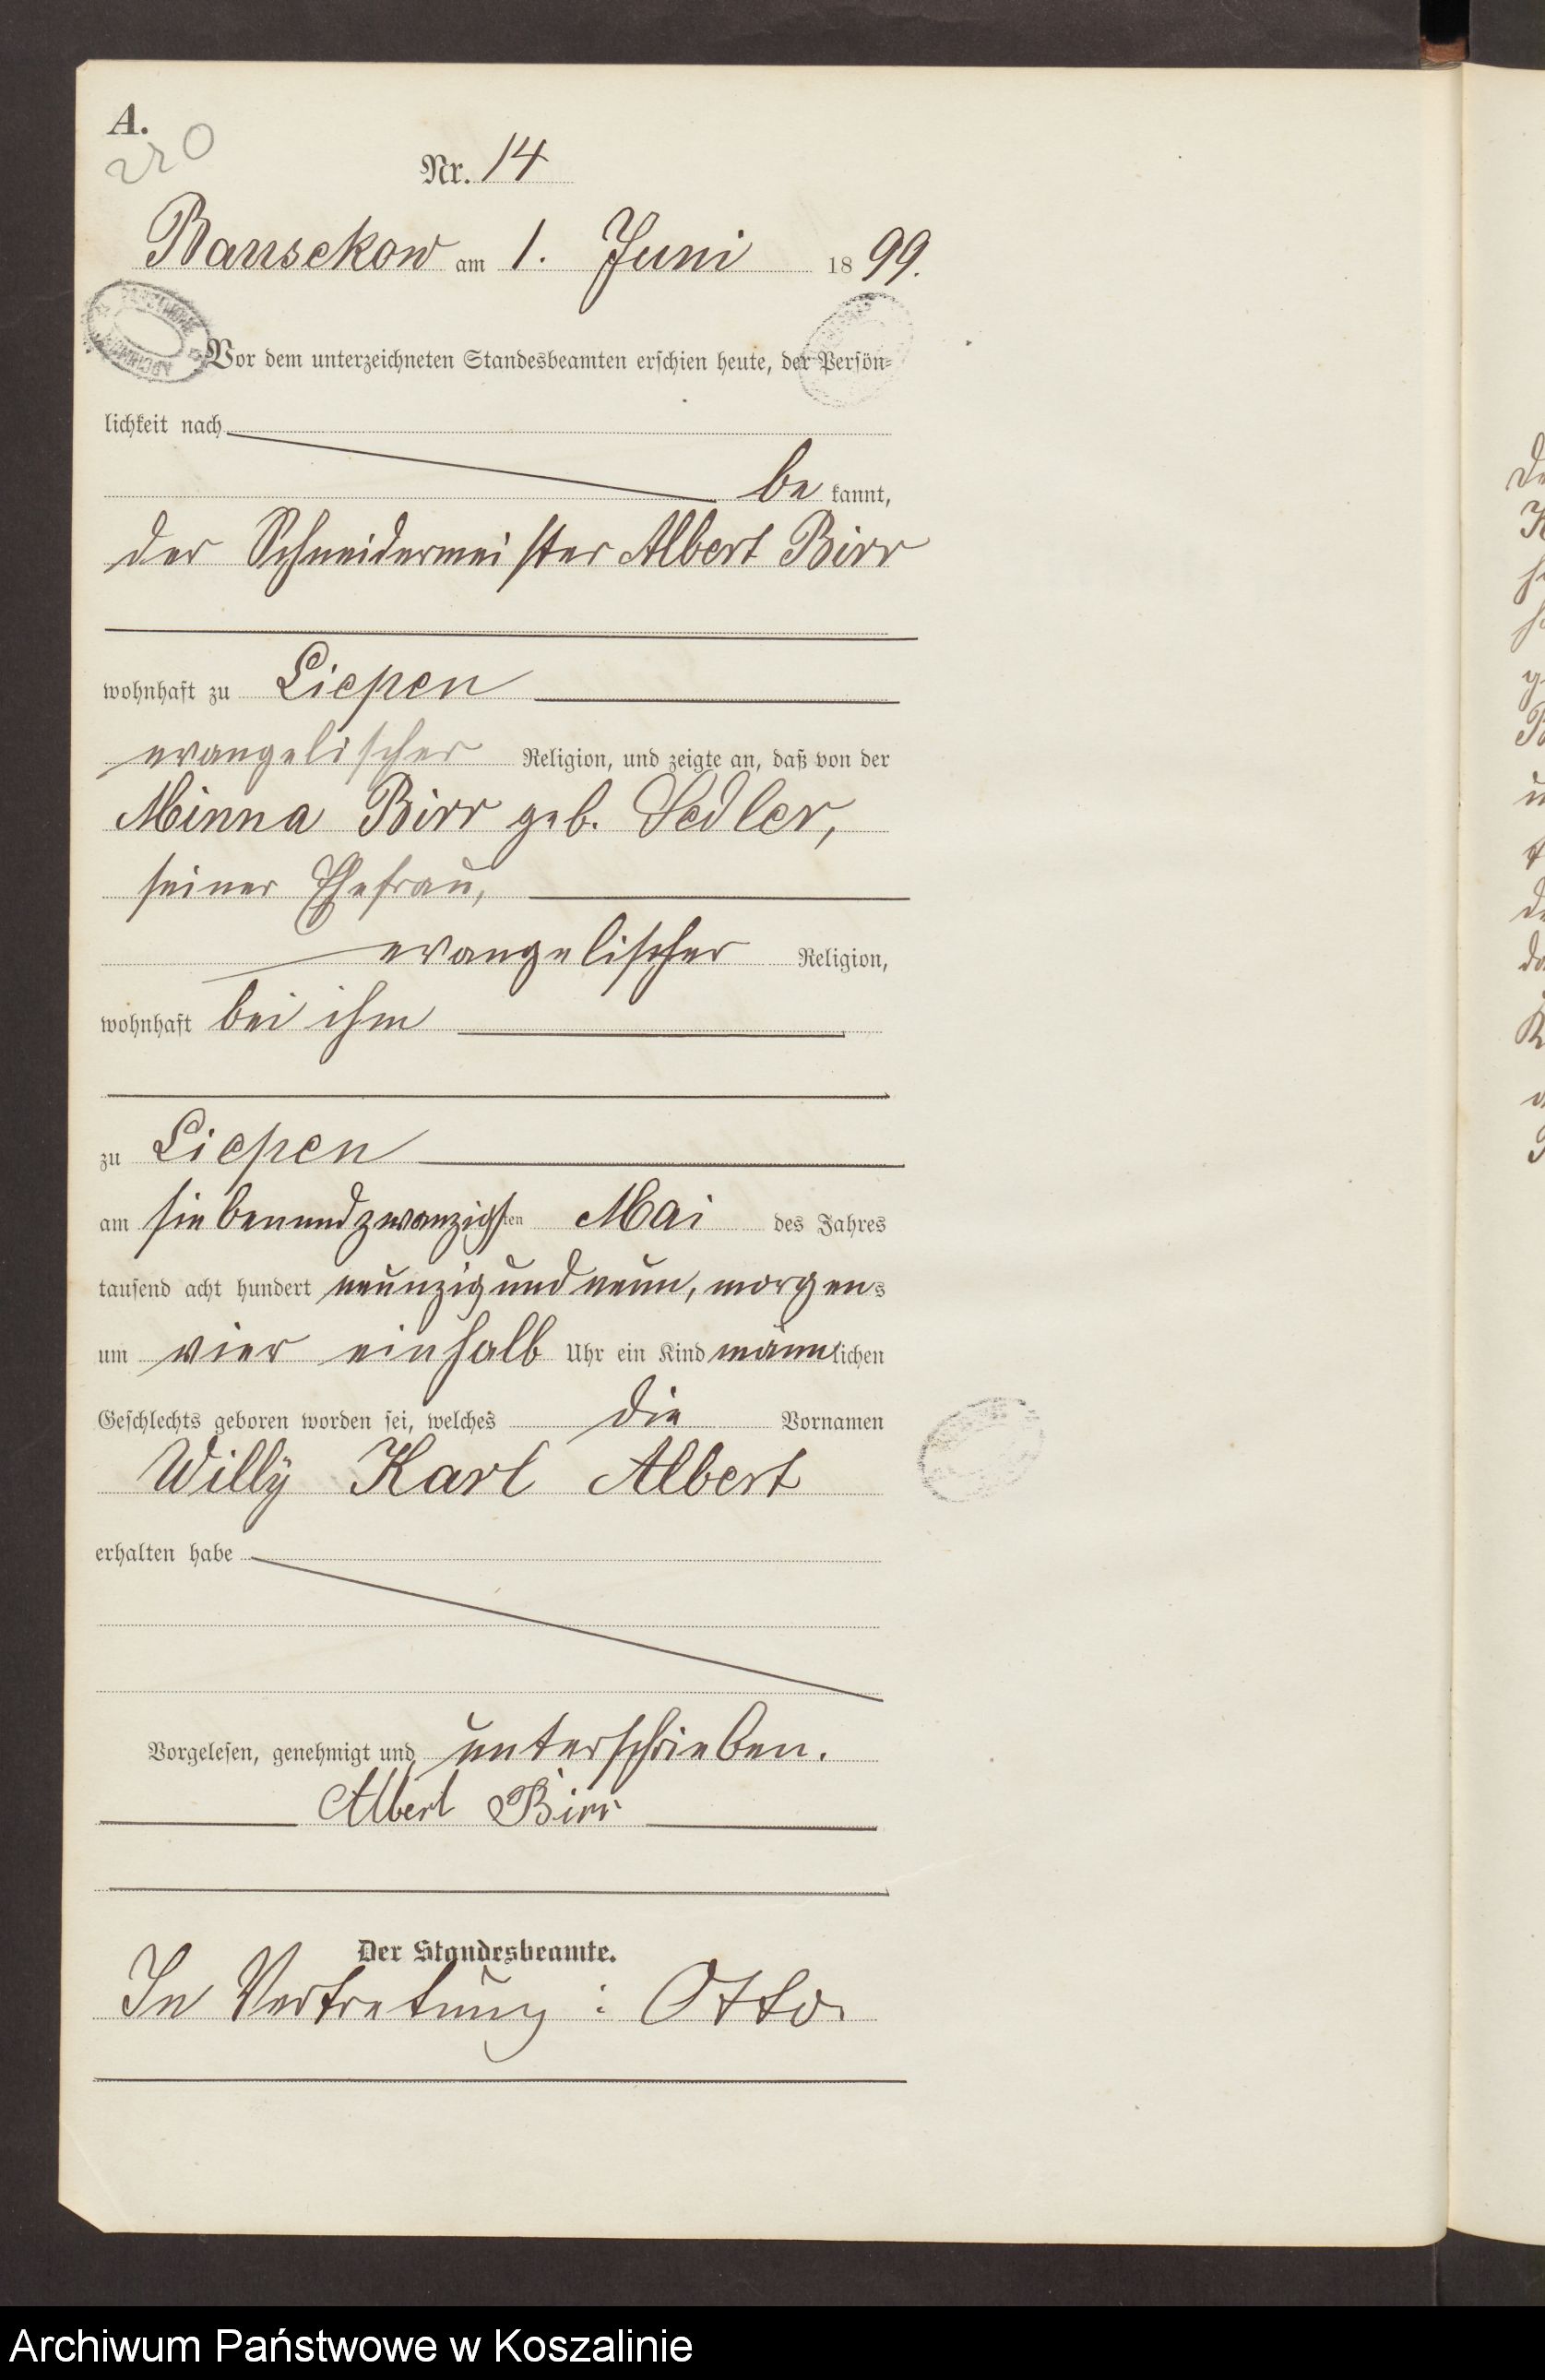 A.
220
Nr. 14
Bansekow am 1. Juni 1899.
Vor dem unterzeichneten Standesbeamten erschien heute, der Persön-
lichkeit nach
be kannt,
der Schneidermeister Albert Birr
wohnhaft zu Liepen
evangelischer Religion, und zeigte an, daß von der
Minna Birr geb. Sedler,
seiner Ehefrau,
evangelischer Religion,
wohnhaft bei ihm
zu Liepen
am siebenundzwanzigsten Mai des Jahres
tausend acht hundert neunzig und neun, morgens
um vier einhalb Uhr ein Kind männlichen
Geschlechts geboren worden sei, welches die Vornamen
Willy Karl Albert
erhalten habe
Vorgelesen, genehmigt und unterschrieben.
Albert Birr
Der Standesbeamte.
In Vertretung: Otto.
Archiwum Państwowe w Koszalinie